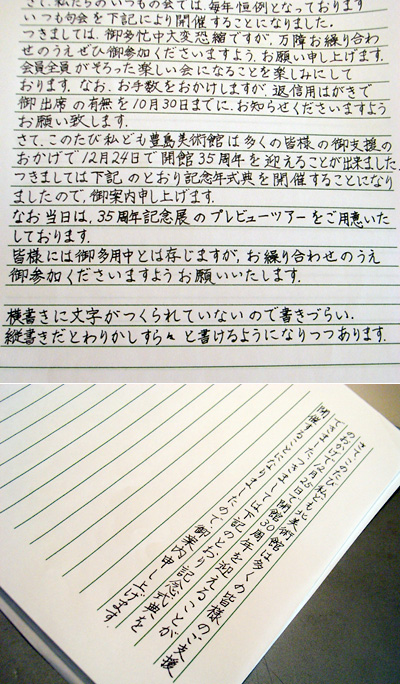 さて、私たちのいつもの会では、毎年恒例となっております
いつも句会を下記により開催することになりました。
つきましては、御多忙中大変恐縮ですが、万障お繰り合わ
せのうえぜひ御参加くださいますよう、お願い申し上げます。
会員全員がそろった楽しい会になることを楽しみにして
おります。なお、お手数をおかけしますが、返信用はがきで
御出席の有無を10月30日までに、お知らせくださいますよう
お願い致します。
さて、このたび私ども豊島美術館は多くの皆様の御支援の
おかげで12月24日で開館35周年を迎えることが出来ました.
つきましては下記のとおり記念年式典を開催することになり
ましたので、御案内申し上げます。
なお当日は、35周年記念展のプレビューツアーをご用意いた
しております.
皆様には御多用中とは存じますが、お繰り合わせのうえ
御参加くださいますようお願いいたします.
横書きに文字がつくられていないので書きづらい.
縦書きだとわりかしすらすらと書けるようになりつつあります.
さて、このたび私ども北美術館は多くの皆様のご支援
のおかげで12月25日で開館30周年を迎えることが
できました。つきましては下記のとおり記念式典を
開催することになりましたので、御案内申し上げます。